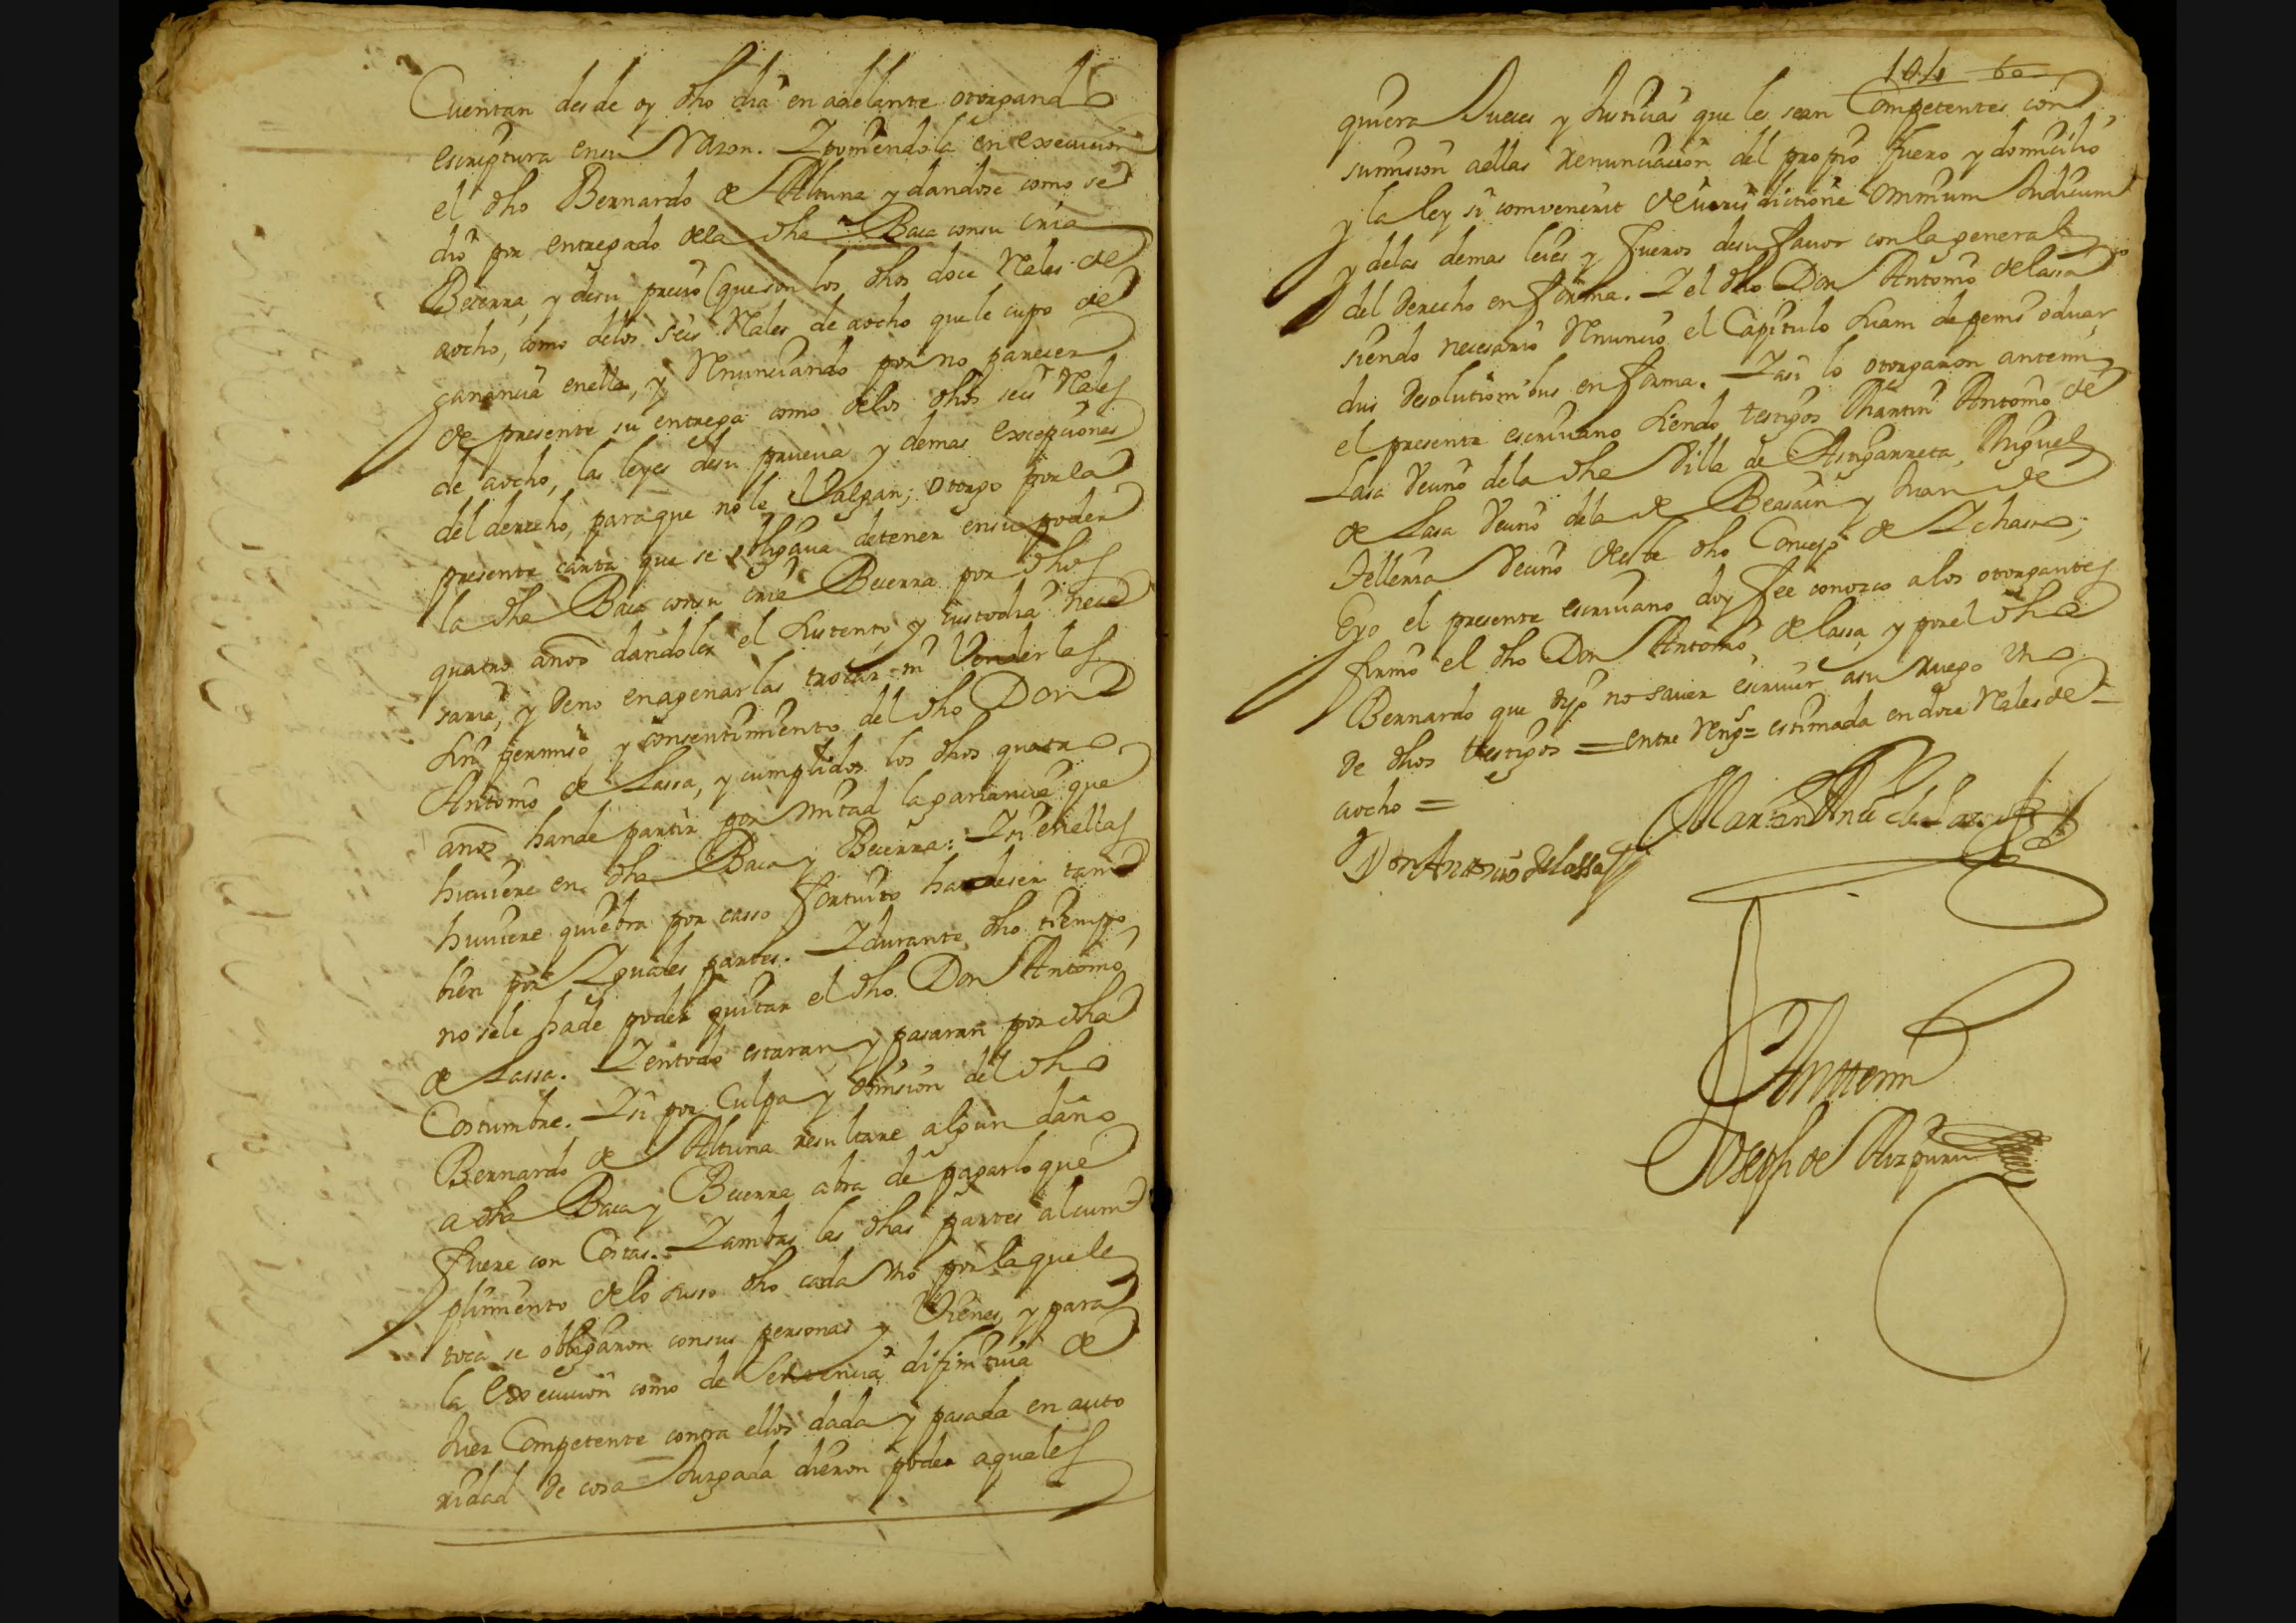 Cuentan desde oy dho dia en adelante otorgando
escriptura en su Razon. Y poniendola en execucion
el dho Bernardo de Altuna y dandose como se
dio por entregado dela dha Baca con su cria
Becerra, y de su precio (que son los dhos doce Rales de
aocho, como delos seis Rales de aocho que le cupo de
ganancia en ella, y Renunciando por no parecer
de presente su entrega como delos dhos seis Rales
de aocho, las leyes de su prueua y demas excepciones
del derecho, para que no le Valgan; otorgo por la
presente carta que se obligaua de tener en su poder
la dha Baca con su cria Becerra por dhos
quatro años dandoles el sustento, y custodia nece
saria, y de no enagenarlas trocar ni Venderlas
sin permiso y consentimiento del dho Don
Antonio de Lassa, y cumplidos los dhos quatro
años hande partir por mitad la ganancia que
huuiere en dha Baca y Becerra: Y si en ellas
huuiere quiebra por casso fortuito ha de ser tam
bien por Yguales partes. Y durante dho tiempo
no sele hade poder quitar el dho Don Antonio
de Lassa. Y en todo estaran, y pasaran por dha
Costumbre. Y si por Culpa y omision del dho
Bernardo de Altuna resultare algun daño
a dha Baca y Becerra abra de pagar lo que
fuere con Costas. Y ambas las dhas partes al cum
plimiento delo susso dho cada Vno por la que le
toca se obligaron con sus personas y Vienes, y para
la Execucion como de Sentencia difinitiua de
Juez Competente contra ellos dada y pasada en auto
ridad de cosa Juzgada dieron poder a quales
104 60
quiera Jueces y Justicias que les sean Competentes con
sumision a ellas renunciacion del propio fuero y domicilio
y la ley si conuenerit de iurisdictione omnium Judicum
y delas demas leies y fueros de su fauor con la general
del derecho en forma. Y el dho Don Antonio de lassa
siendo necesario Renuncio el Capitulo suam de penis oduar
dus de solutionibus en forma. Y asi lo otorgaron ante mi
el presente escriuano siendo testigos Martin Antonio de
Lasa Vecino dela dha Villa de Astigarreta, Miguel
de Lasa Vecino dela de Beasain y Juan de
Telleria Vecino de este dho Concejo de Ychaso;
E yo el presente escriuano doy fee conozco a los otorgantes
firmo el dho Don Antonio de lassa, y por el dho
Bernardo que dijo no sauer escriuir a su ruego Vno
de dhos testigos = entre Reng.s = estimada en doce Rales de =
aocho =
Martin Ant.o de Lasa
Don Antonio de lassa
Ante mi
Joseph de Aizpuru